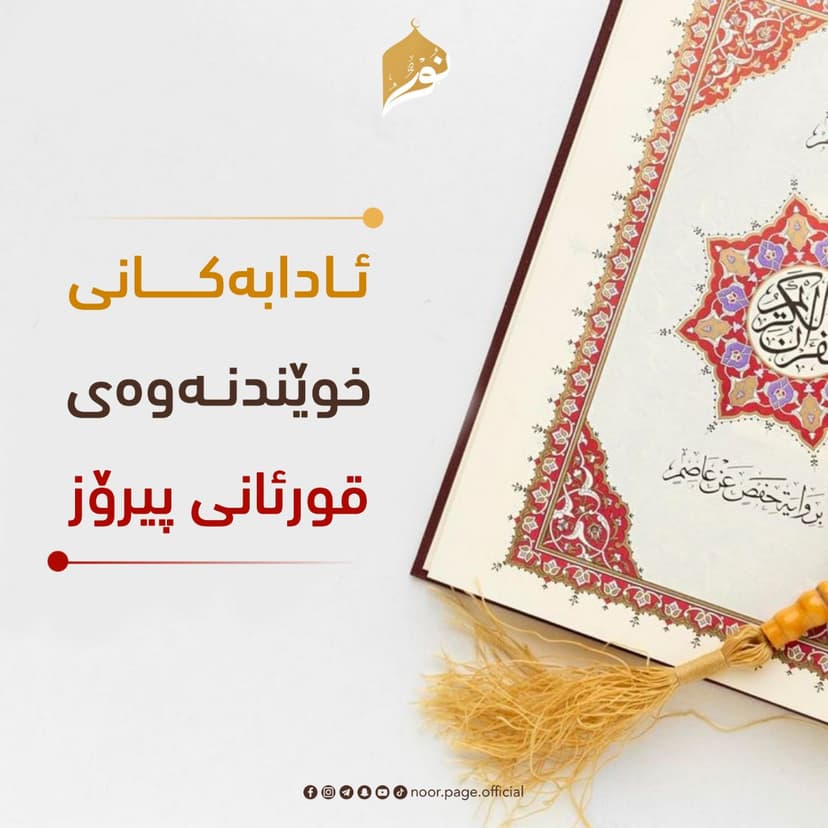 نور
ئـادابەکـــانی
خوێندنـەوەی
قورئانی پیرۆز
القرآن الكريم
برواية حفص عن عاصم
noor.page.official